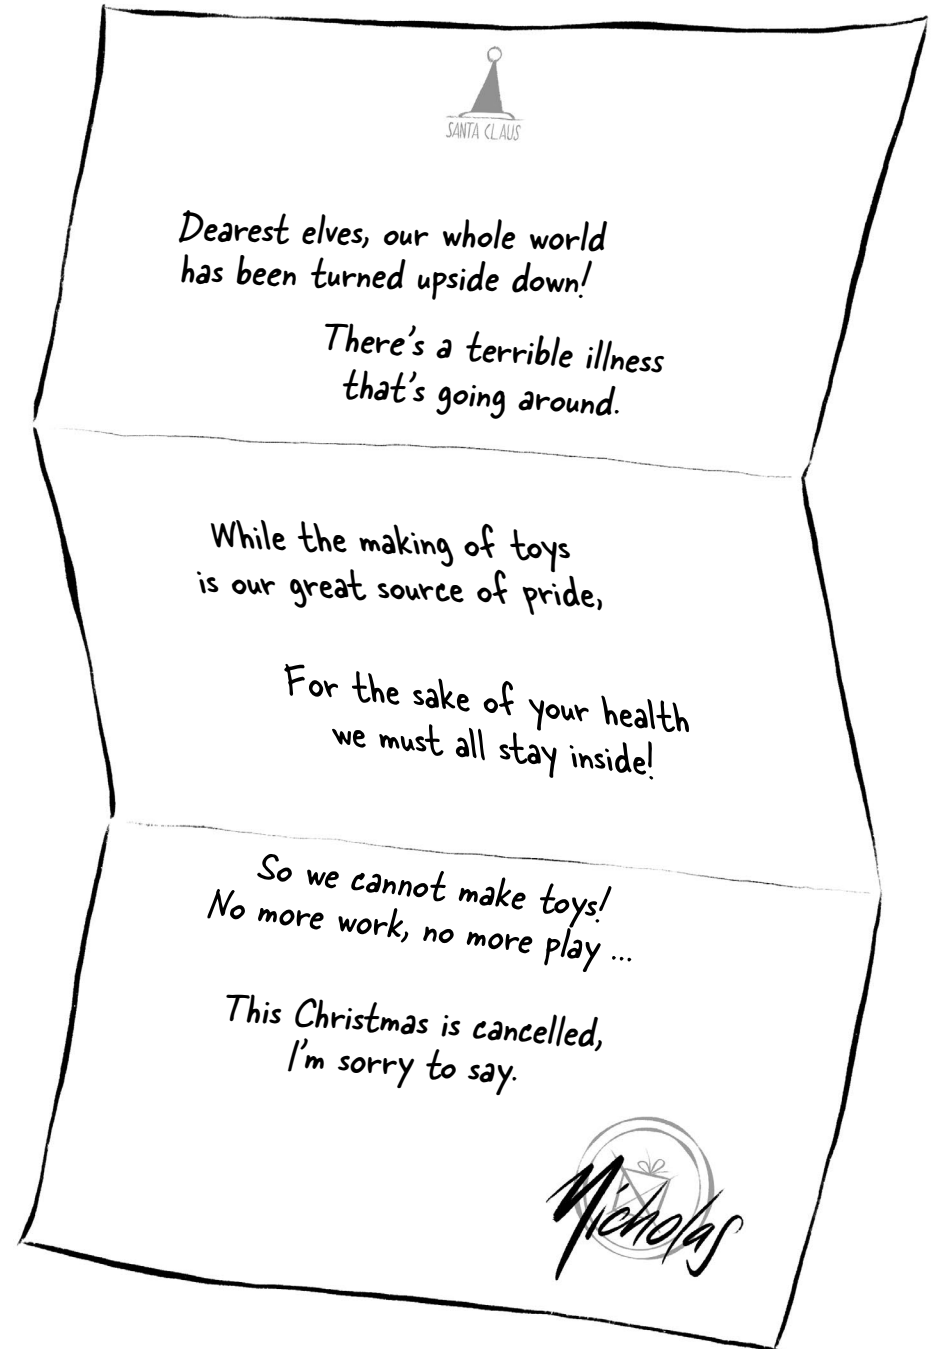 SANTA CLAUS
Dearest elves, our whole world
has been turned upside down!
There's a terrible illness
that's going around.
While the making of toys
is our great source of pride,
For the sake of your health
we must all stay inside!
So we cannot make toys!
No more work, no more play ...
This Christmas is cancelled,
I'm sorry to say.
Nicholas